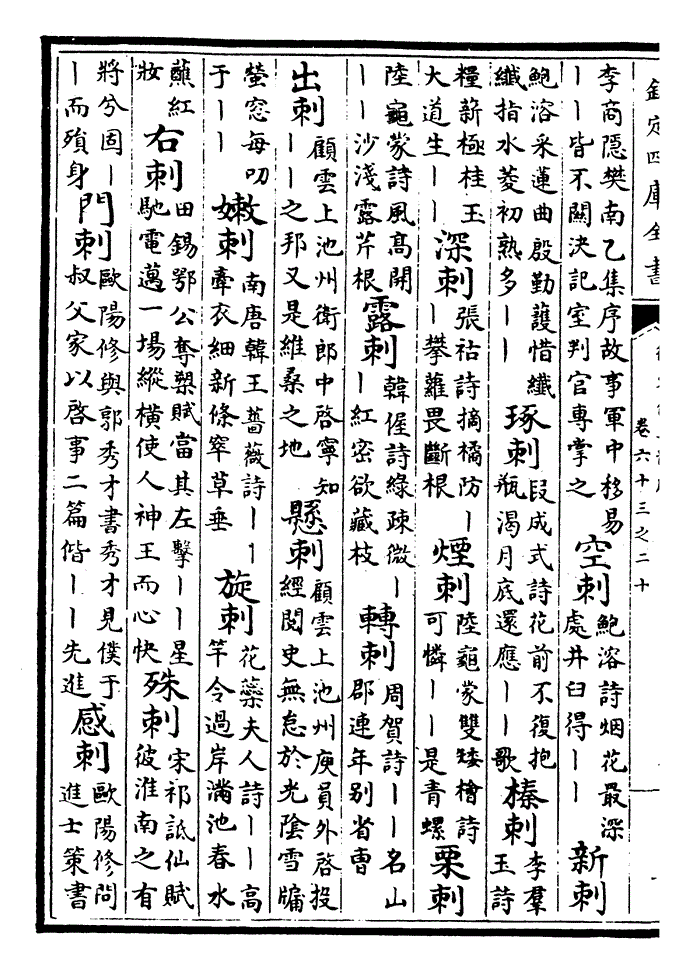 欽定四庫全書
卷六十三之二十
李商隱樊南乙集序故事軍中移易
丨丨皆不關決記室判官專掌之
空刺
鮑溶詩烟花最深
處井臼得丨丨
新刺
鮑溶采蓮曲殷勤護惜纖
纖指水菱初熟多丨丨
琢刺
段成式詩花前不復抱
瓶渴月底還應丨丨歌
榛刺
李羣
玉詩
糧薪極桂玉
大道生丨丨
深刺
張祜詩摘橘防丨
丨攀蘿畏斷根
煙刺
陸龜蒙雙矮檜詩
可憐丨丨是青螺
栗刺
陸龜蒙詩風髙開
丨丨沙淺露芹根
露刺
韓偓詩綠疎微丨
丨紅密欲藏枝
轉刺
周賀詩丨丨名山
郡連年別省曹
出刺
顧雲上池州衛郎中啓寧知
丨丨之邦又是維桑之地
懸刺
顧雲上池州庾員外啓投
經閱史無怠於光陰雪牖
螢窓每叨
于丨丨
嫩刺
南唐韓王薔薇詩丨丨
牽衣細新條窣草垂
旋刺
花蘂夫人詩丨丨高
竿令過岸滿池春水
蘸紅
妝
右刺
田錫鄂公奪槊賦當其左擊丨丨星
馳電邁一場縱橫使人神王而心快
殊刺
宋祁詆仙賦
彼淮南之有
將兮固丨
丨而殞身
門刺
歐陽修與郭秀才書秀才見僕于
叔父家以啓事二篇偕丨丨先進
感刺
歐陽修問
進士策書